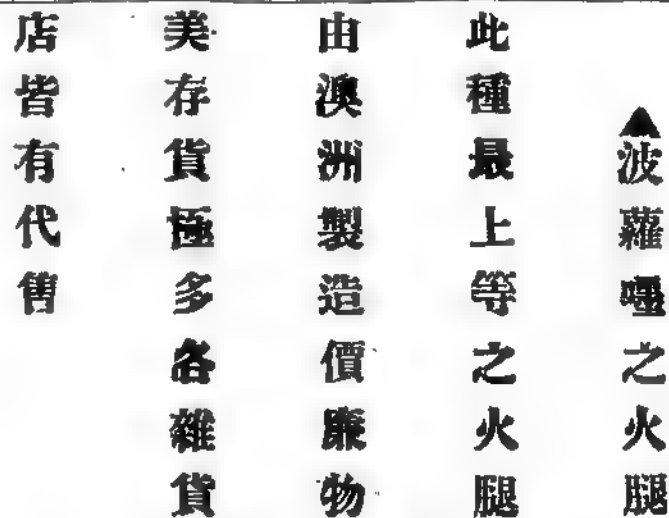 ▲波蘿嘜之火腿
此種最上等之火腿
由澳洲製造價廉物
美存貨極多各雜貨
店皆有代售